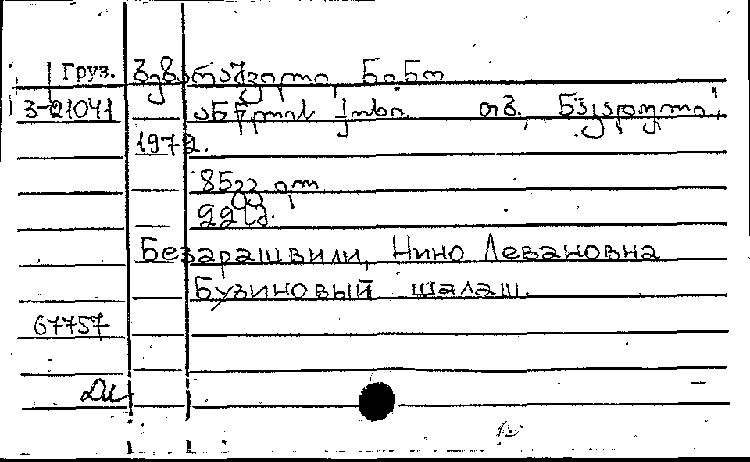 Груз. ბეზარაშვილი, ნინო
3-21041 ანწლის ქოხი. თბ., ნაკადული,
1972.
22
Безарашвили, Нино Левановна
Бузиновый шалаш.
67757